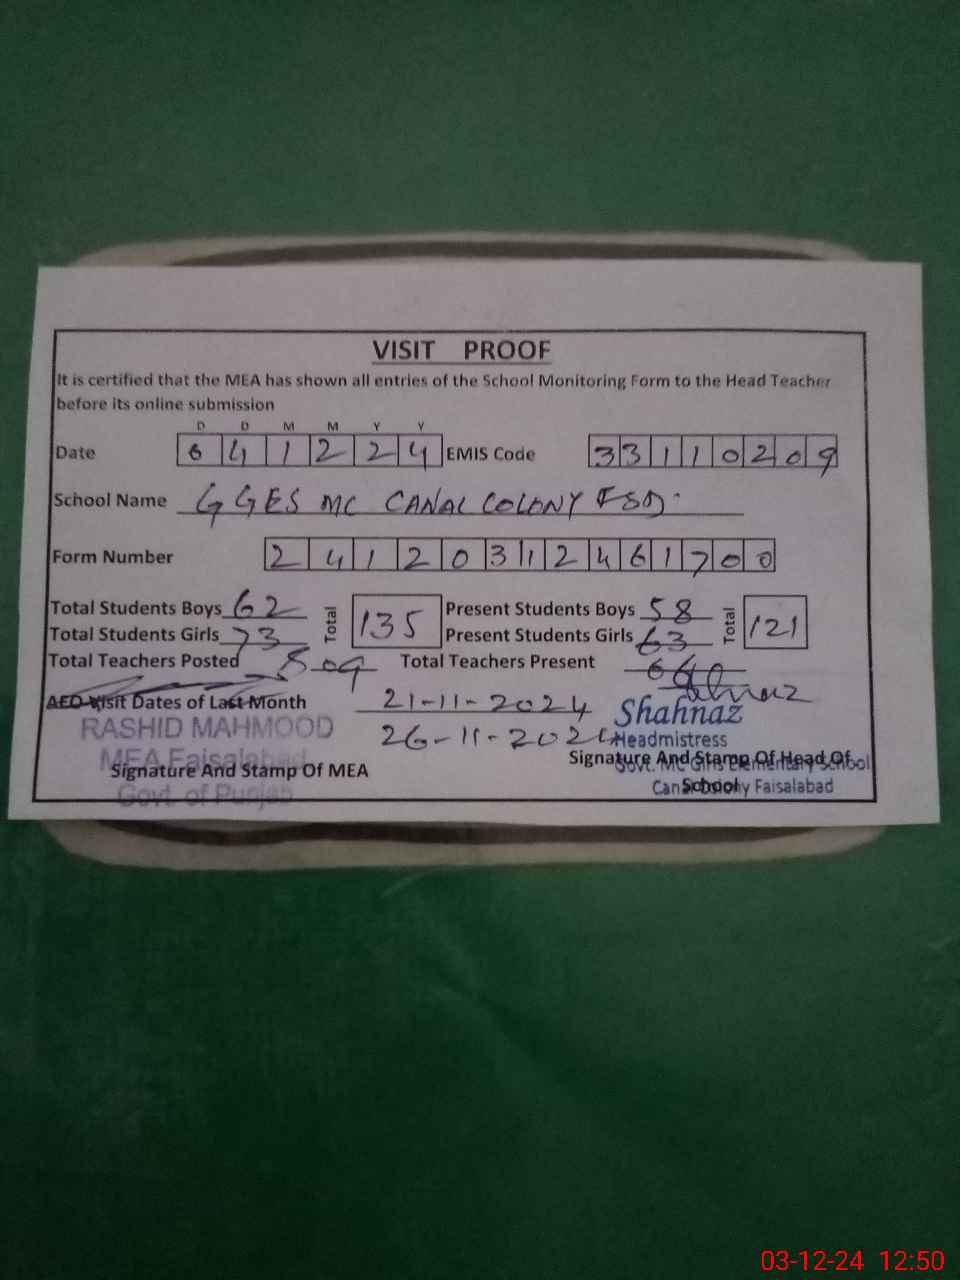 VISIT PROOF
It is certified that the MEA has shown all entries of the School Monitoring Form to the Head Teacher
before its online submission
D D M M Y Y
Date 0 4 1 2 2 4 EMIS Code 3 3 1 1 0 2 0 9
School Name GGES MC CANAL COLONY FSD.
Form Number 2 4 1 2 0 3 1 2 4 6 1 7 0 0
Total Students Boys 62 Total 135 Present Students Boys 58 Total 121
Total Students Girls 73 Present Students Girls 63
Total Teachers Posted 09 Total Teachers Present
AEO Visit Dates of Last Month 21-11-2024
26-11-2024
RASHID MAHMOOD
MEA Faisalabad
Govt. of Punjab
Signature And Stamp Of MEA
Shahnaz
Shahnaz
Headmistress
Govt. MC Girls Elementary School
Canal Colony Faisalabad
Signature And Stamp Of Head Of
School
03-12-24 12:50